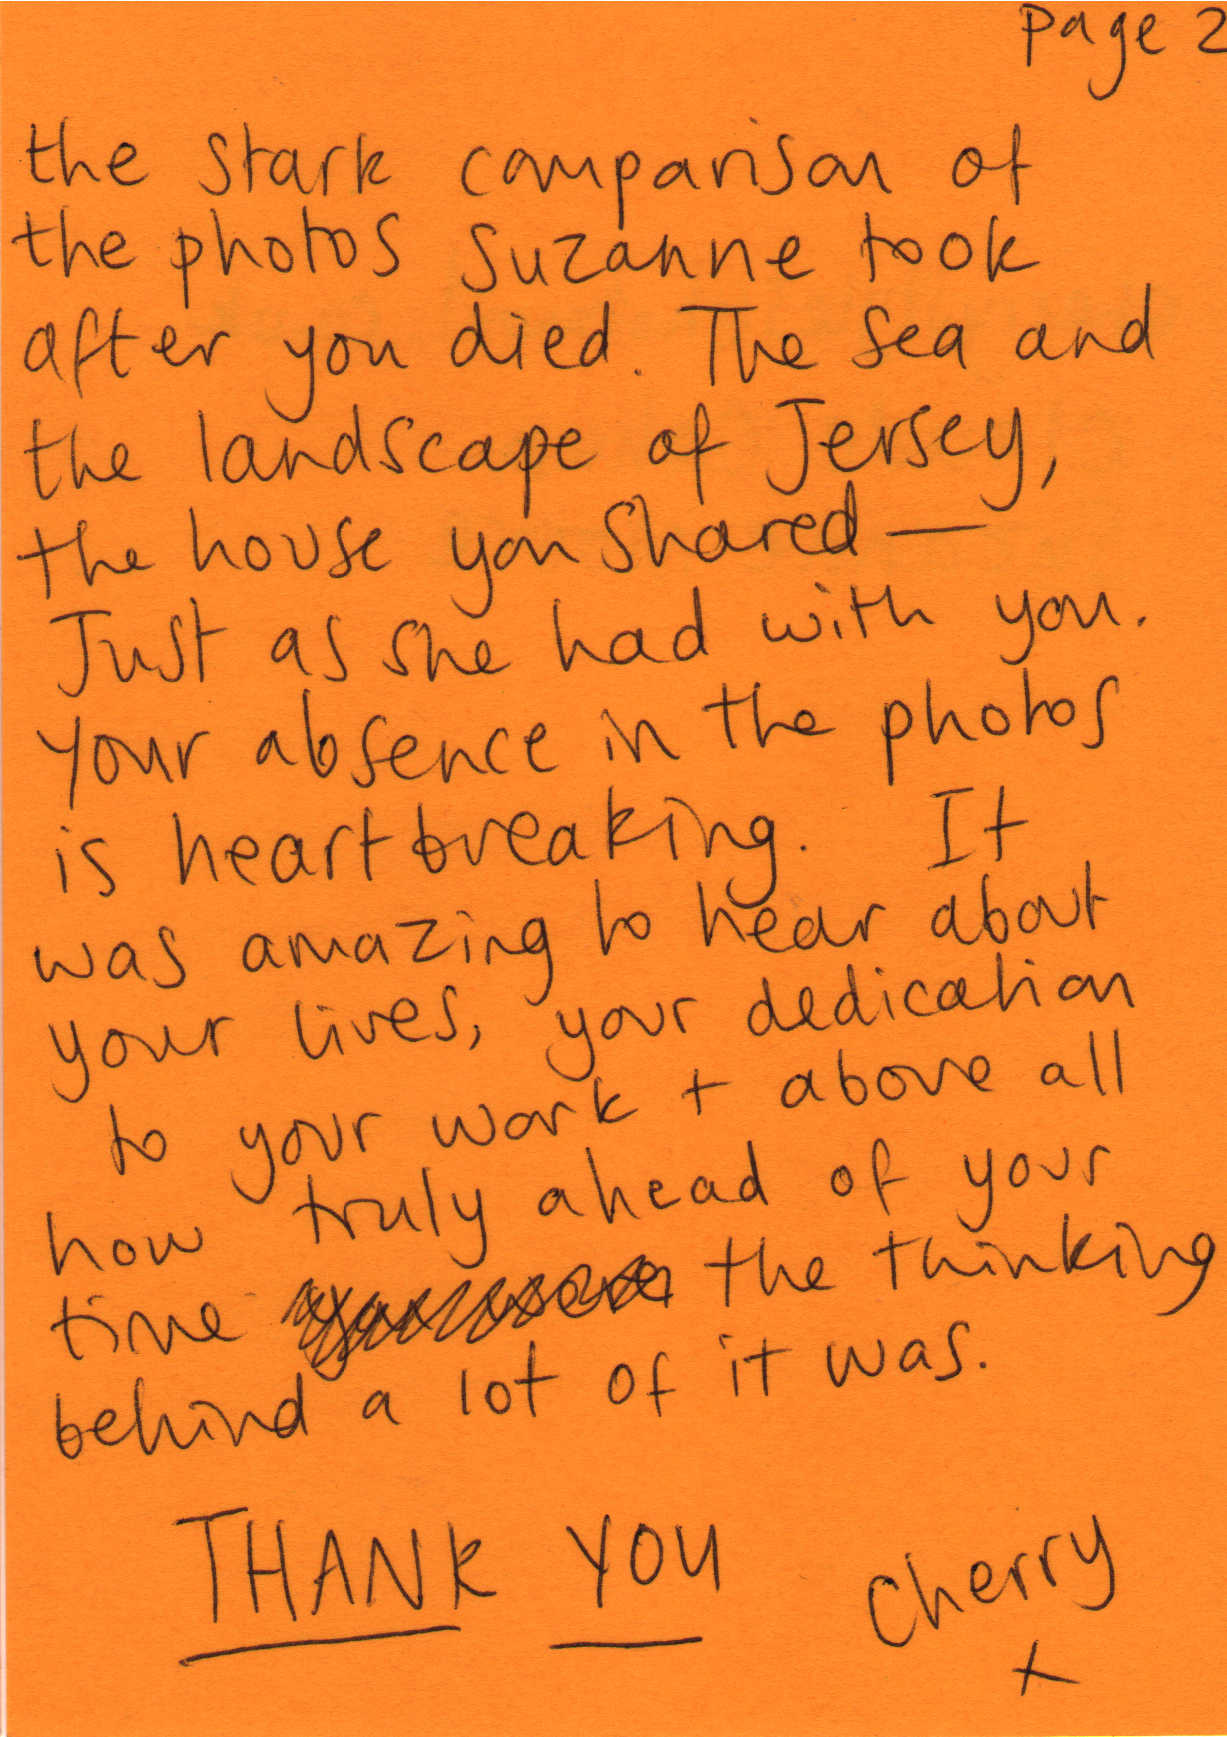 page 2
the stark comparison of
the photos Suzanne took
after you died. The sea and
the landscape of Jersey,
the house you shared —
Just as she had with you.
Your absence in the photos
is heartbreaking. It
was amazing to hear about
your lives, your dedication
to your work + above all
how truly ahead of your
time the thinking
behind a lot of it was.
THANK YOU
Cherry
x